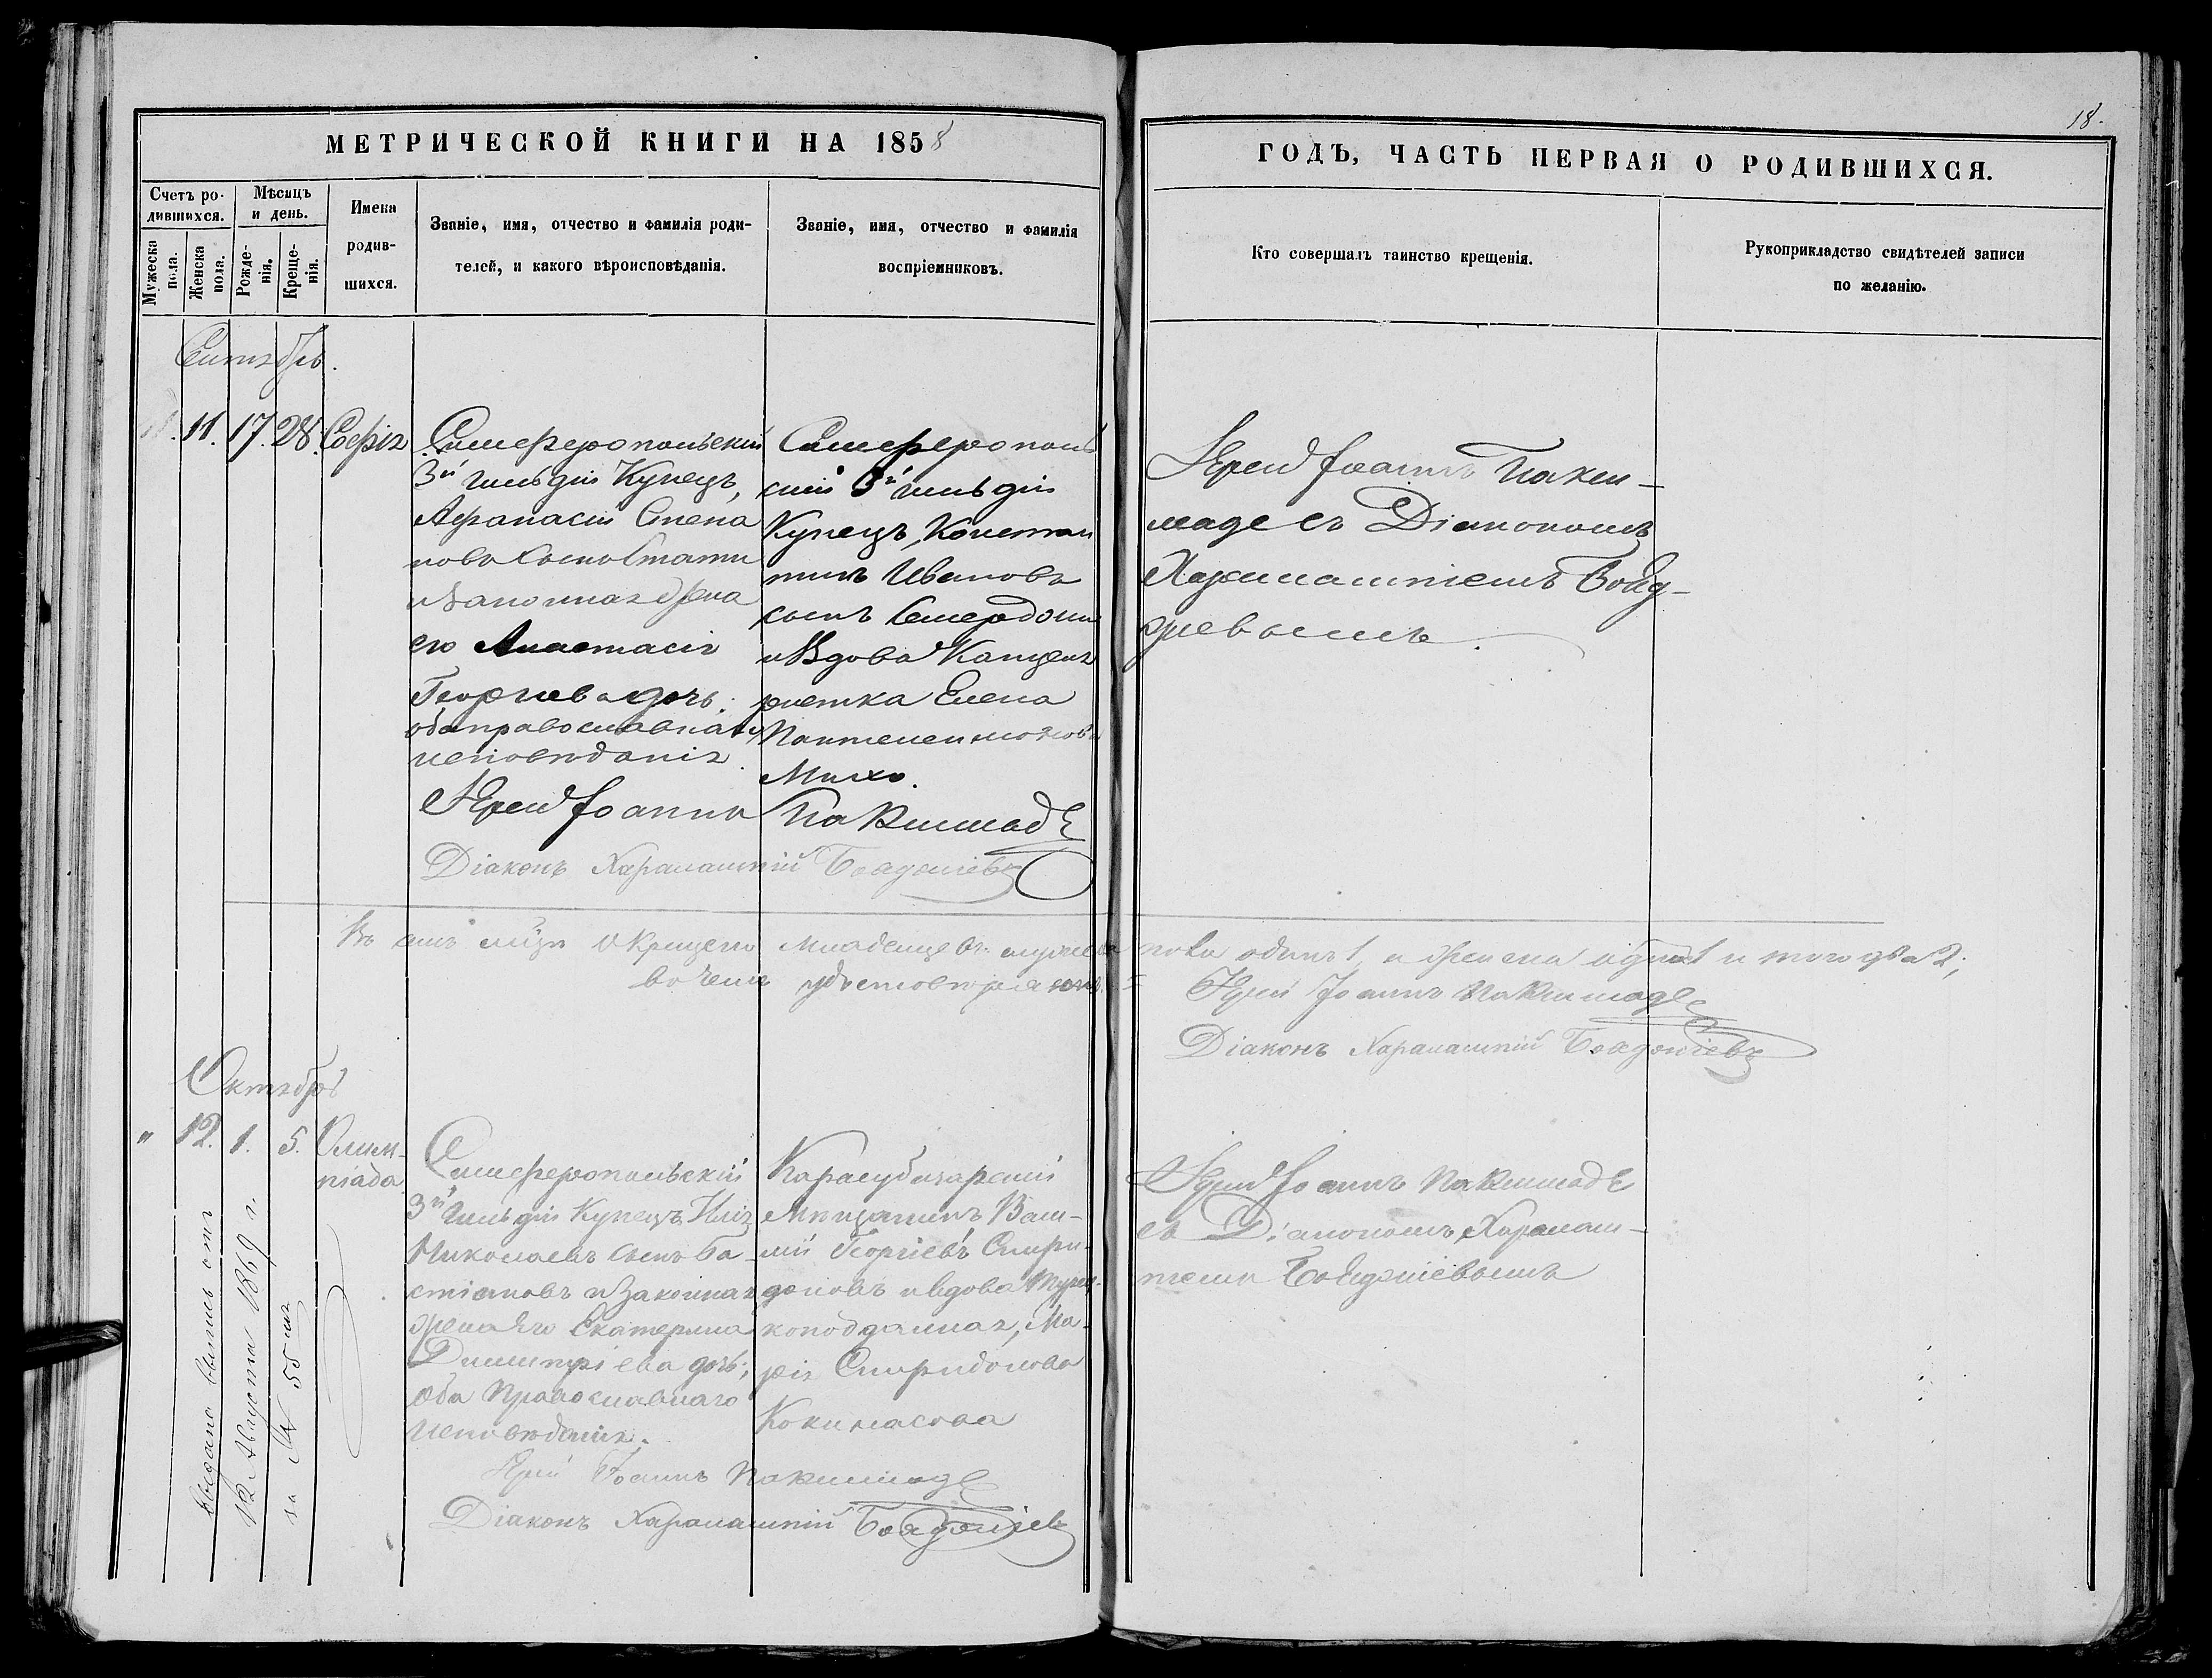 18.
МЕТРИЧЕСКОЙ КНИГИ НА 1858
ГОДЪ, ЧАСТЬ ПЕРВАЯ О РОДИВШИХСЯ.
Счетъ ро-
дившихся.
Мужеска
пола.
Женска
пола.
Мѣсяцъ
и день.
Рожде-
нія.
Креще-
нія.
Имена
родив-
шихся.
Званіе, имя, отчество и фамилія роди-
телей, и какого вѣроисповѣданія.
Званіе, имя, отчество и фамилія
воспріемниковъ.
Кто совершалъ таинство крещенія.
Рукоприкладство свидѣтелей записи
по желанію.
Сентябрь.
11. 17. 28. Софія
Симферопольскій
3й гильдіи Купецъ,
Афанасій Степа
новъ сынъ
и Законная Жена
его Анастасія
Георгіева дочь.
оба православнаго
исповѣданія.
Симферополь
скій 3й гильдіи
Купецъ, Констан
тинъ Ивановъ
сынъ
и Вдова Канцеля
ристка Елена
Пантелеимонова
Михо.
Іерей Іоаннъ Паки-
маде съ Діакономъ
Харлампіемъ Бояд-
жіевымъ.
Іерей Іоаннъ Пакимаде
Діаконъ Харалампій Бояджіевъ
Въ семъ мцѣ Окрещено Младенцевъ мужеска пола одинъ 1, а женска одна 1 и того два 2;
въ чемъ удостовѣряемъ:
Іерей Іоаннъ Пакимаде
Діаконъ Харалампій Бояджіевъ
Октябрь
" 12. 1. 5. Олим-
піада
Симферопольскій
3й гильдіи Купецъ Илія
Николаевъ сынъ Ба-
стіановъ и Законная
жена Его Екатерина
Димитріева дочь;
оба Православнаго
Исповѣданія.
Карасубазарскій
Мѣщанинъ Васи-
лій Георгіевъ Спири-
доновъ и вдова Турец-
коподданная, Ма-
рія Спиридонова
Кокинасова
Іерей Іоаннъ Пакимаде
съ Діакономъ Харалам-
піемъ Бояджіевымъ
Іерей Іоаннъ Пакимаде
Діаконъ Харалампій Бояджіевъ
Выдана выпись отъ
12 Августа 1869 г.
за №